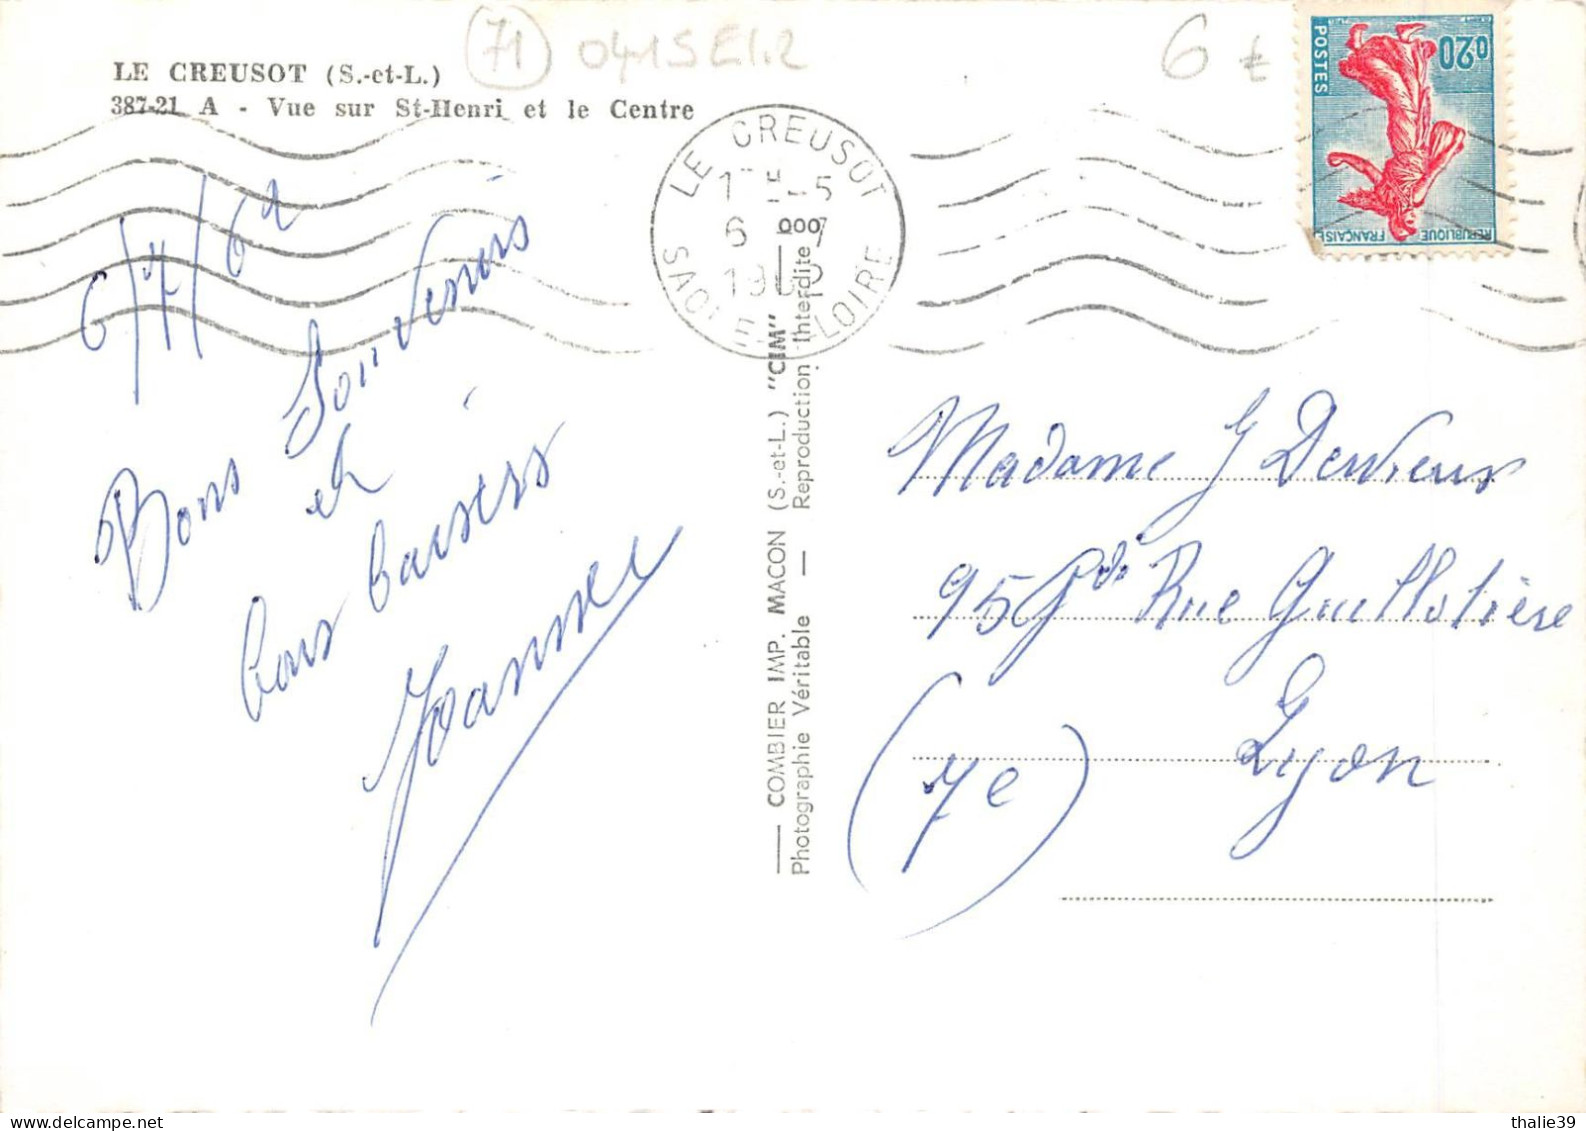 71 041SE1.2
6 €
LE CREUSOT (S.-et-L.)
387-21 A - Vue sur St-Henri et le Centre
0,20
POSTES
REPUBLIQUE FRANÇAISE
LE CREUSOT
6 7
SAONE ET LOIRE
6/7/62
Bons Souvenirs
et
bons baisers
Joannes
COMBIER IMP. MACON (S.-et-L.) "CIM"
Photographie Véritable — Reproduction Interdite
Madame J Denvieux
95 Gde Rue Guillotière
Lyon
(7e)
thalie39